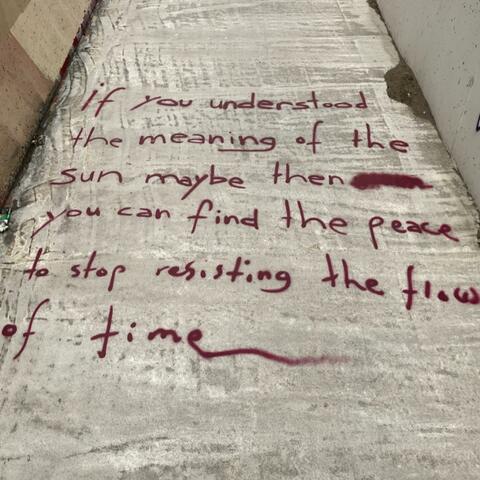 if you understood
the meaning of the
sun maybe then
you can find the peace
to stop resisting the flow
of time